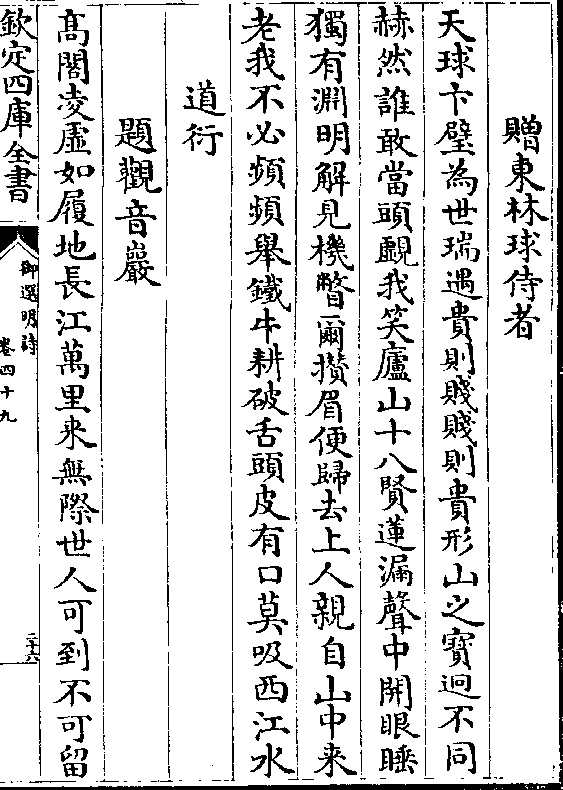 贈東林球侍者
天球卞璧為世瑞遇貴則賤賤則貴形山之寶迥不同
赫然誰敢當頭覷我笑廬山十八賢蓮漏聲中開眼睡
獨有淵明解見機瞥爾攢眉便歸去上人親自山中来
老我不必頻頻舉鐵牛耕破舌頭皮有口莫吸西江水
道衍
題觀音巖
髙閣凌虚如履地長江萬里来無際世人可到不可留
欽定四庫全書
御選明詩
卷四十九
二十六